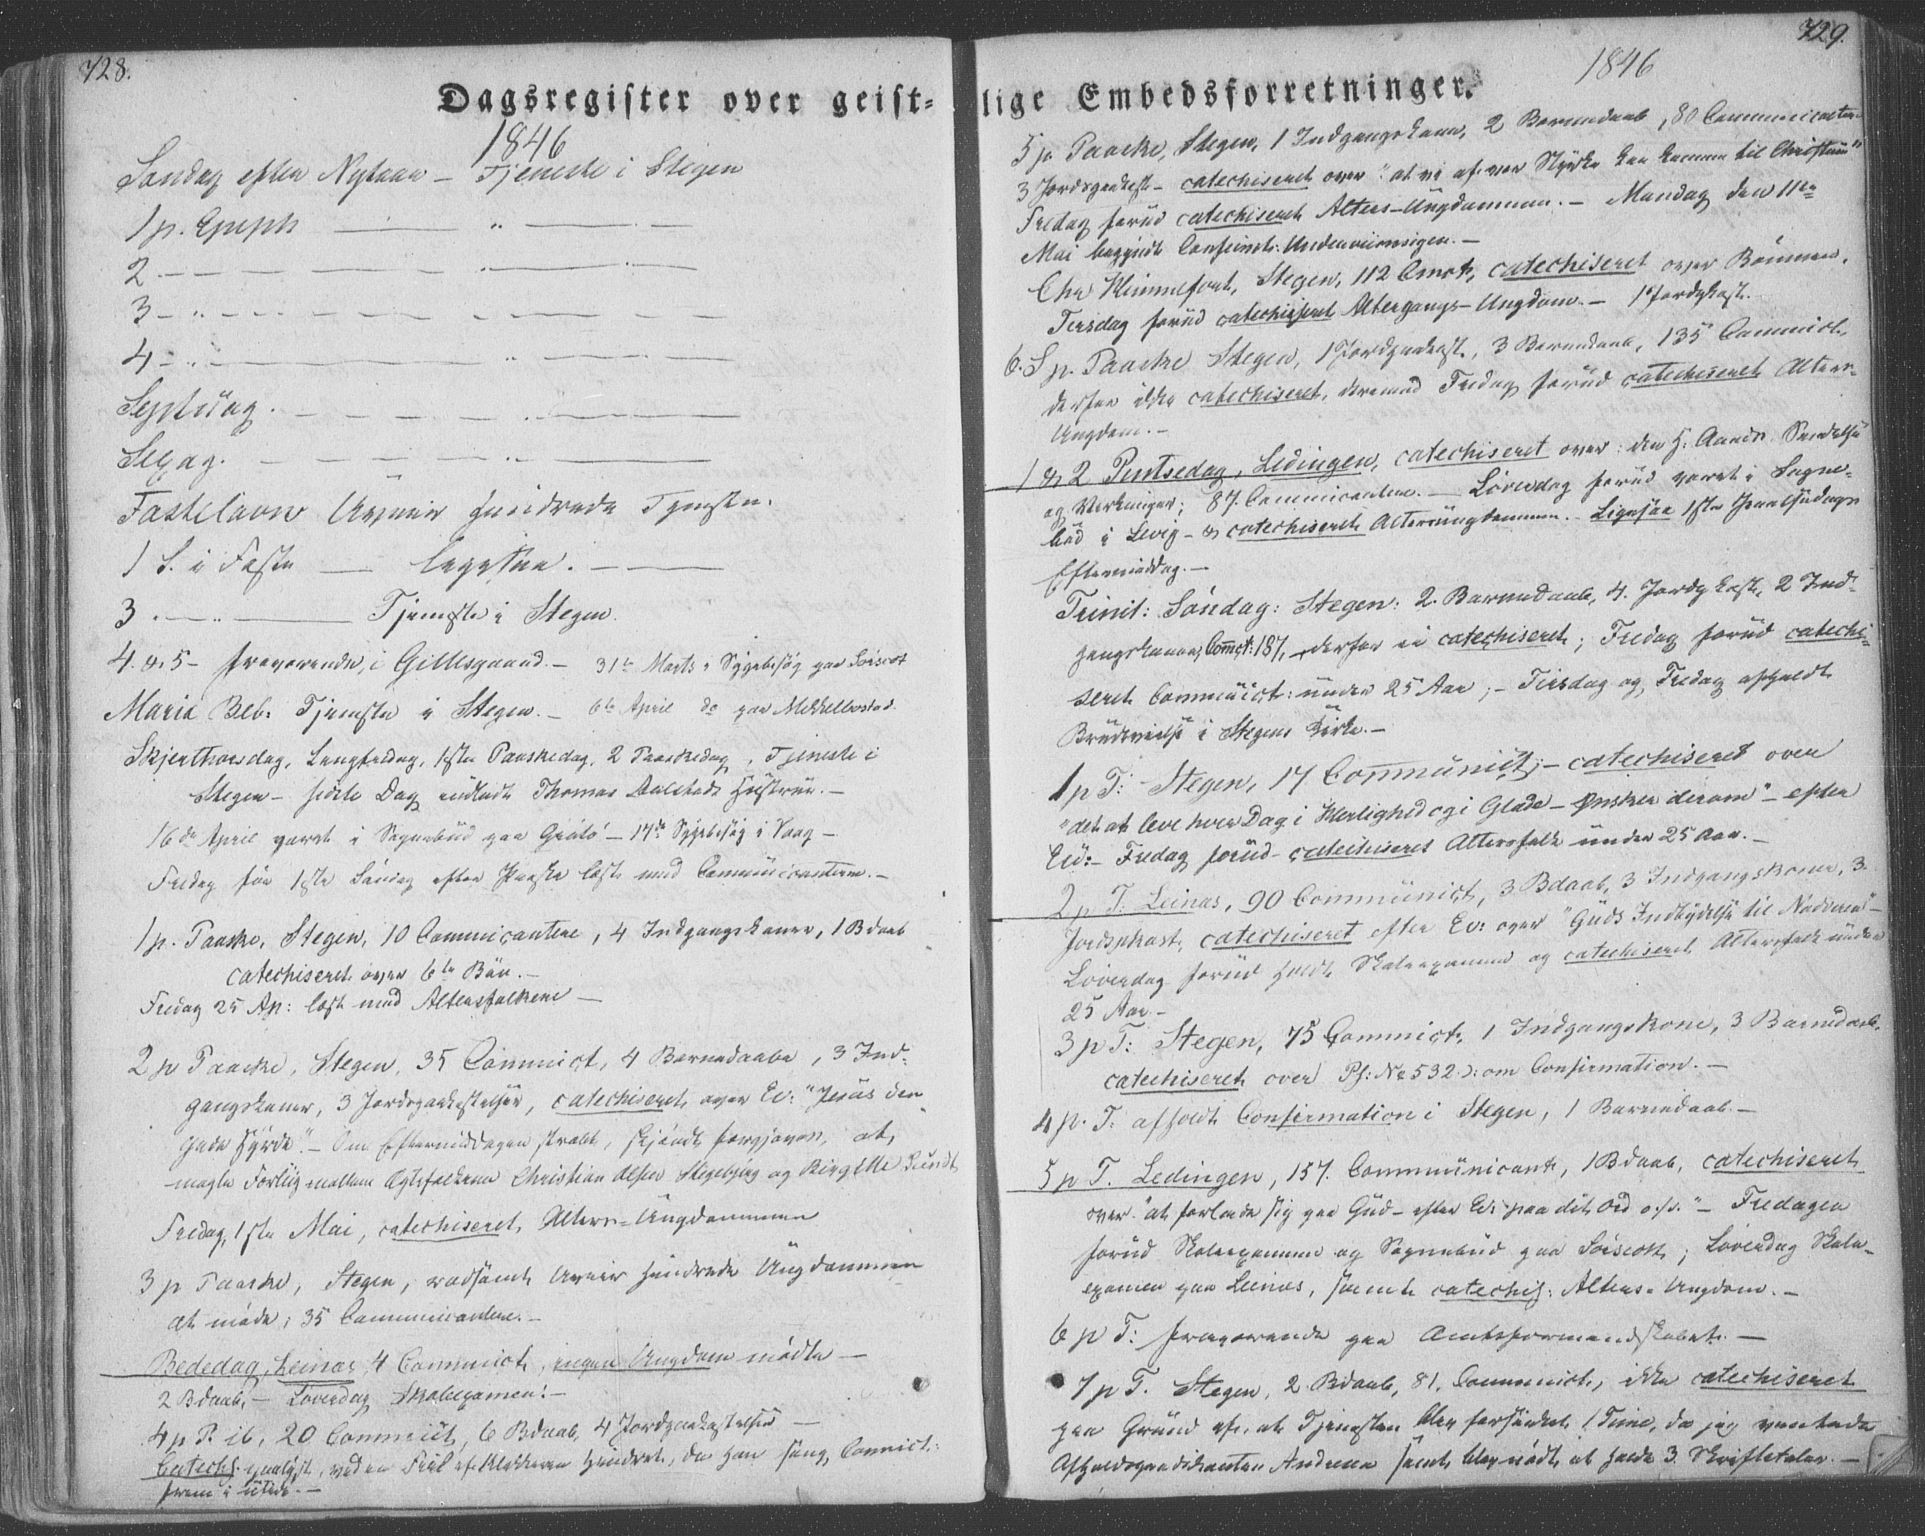 728.
Dagsregister over geist-
1846
Søndag efter Nytaar – Tjeneste i Stegen
1 p. Epiph — „ —
2 — — „ —
3 — „ — —
4 — „ — „ —
Septuag. — — „ —
Sexag. — — „ —
Fastelavn Uveier hindrede Tjenesten.
1 S. i Faste —
3 — „ — Tjeneste i Stegen.
4. & 5 – fraværende i Gildesgaard. – 31te Marts i Sygebesøg paa
Mariæ Beb. Tjeneste i Stegen. – 6te April do paa Mekkelbostad.
Skjerthorsdag, Langfredag, 1ste Paaskedag, 2 Paaskedag, Tjeneste i
Stegen – sidste Dag indledt Thomas Hustrue. –
16de April været i Sognebud paa – 17de Sygebesøg i Vaag –
Fredag før 1ste Søndag efter Paaske læst med Communicanterne. –
1 p. Paaske, Stegen, 10 Communicantere, 4 Indgangskoner, 1 Bdaab
catechiseret over 6te Bøn. –
Fredag 25 Ap: læst med Altersfolkene –
2 p Paaske, Stegen, 35 Commict, 4 Barnedaabe, 3 Ind-
gangskoner, 3 Jordspaakastelser, catechiseret over Ev: "Jesus den
gode Hyrde". – Om Eftermiddagen stræbt, skjøndt forgjæves, at
mægle Forliig mellem Ægtefolkene Christian Olsen og Birgitte
Fredag, 1ste Mai, catechiseret Alters-Ungdommen
3 p Paaske, Stegen, Uveir hindrede Ungdommen
at møde; 35 Communicantere. –
Bededag, Leines, 4 Commict, ingen Ungdom mødte –
2 Bdaab, – Løverdag Skoleexamen. –
4 p P. ib, 20 Commict, 6 Bdaab, 4 Jordpaakastelser –
Catech. ved en Feil af Klokkeren hindret, da han sang Commict:
frem i utide. –
lige Embedsforretninger.
729.
1846
5 p Paaske, Stegen, 1 Indgangskone, 2 Barnedaab, 80 Communicanter
3 Jordspaakast – catechiseret over "at vi af vor Styrke kan komme til Christum"
Fredag forud catechiseret Alters-Ungdommen. – Mandag den 11te
Mai begyndt Confirmat: Underviisningen. –
Chr Himmelfart, Stegen, 112 Cmct, catechiseret over Bønnen.
Tirsdag forud catechiseret Altergangs-Ungdom. – 1 Jordpkast.
6. S p. Paaske Stegen, 1 Jordpaakast, 3 Barnedaab, 135 Commict.
derfor ikke catechiseret, derimod Fredag forud catechiseret Alters-
Ungdom. –
1 & 2 Pintsedag, Ledingen, catechiseret over: den H. Aands Sendelse
og Virkninger; 87 Communicantere. – Løverdag forud været i Sogne-
bud i – & catechiseret Altersungdommen. Ligesaa 1ste
Eftermiddag. –
Trinit: Søndag: Stegen: 2 Barnedaab, 4 Jordpkast, 2 Ind-
gangskoner, Comct: 187, – derfor ei catechiseret; Fredag forud catechi-
seret Commict: under 25 Aar; – Tirsdag og Fredag afholdt
Brudevielse i Stegens Kirke. –
1 p T: Stegen, 17 Communict; – catechiseret over
"det at leve hver Dag i Herlighed og i Glæde – Ønsker derom" – efter
Ev: – Fredag forud – catechiseret Altersfolk under 25 Aar. –
2 p T. Leines, 90 Communict, 3 Bdaab, 3 Indgangskoner, 3
Jordspkast, catechiseret efter Ev: over "Guds Indbydelse til Nadveren" –
Løverdag forud holdt Skoleexamen og catechiseret Altersfolk under
25 Aar. –
3 p T: Stegen, 75 Commict, 1 Indgangskone, 3 Barnedaab,
catechiseret over Ps: No 532 ɔ: om Confirmation. –
4 p. T: afholdt Confirmation i Stegen, 1 Barnedaab. –
5 p T. Ledingen, 157. Communicant, 1 Bdaab, catechiseret
over "at forlade sig paa Gud – efter Ev: paa dit Ord o.s.v." – Fredagen
forud Skoleexamen og Sognebud paa; Løverdag Skole-
examen paa Leines, samt catechis: Alters-Ungdom. –
6 p T: fraværende paa Amtsformandskabet. –
7 p T. Stegen, 2 Bdaab, 81. Communict, ikke catechiseret
paa Grund af, at Tjenesten blev forsinket 1 Time, da jeg ventede
Afholds Andresen samt blev nødt at holde 3 Skriftetaler. –